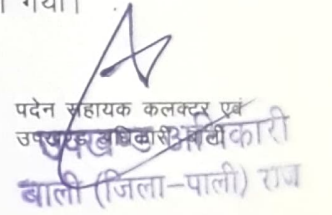 गया।
पदेन सहायक कलक्टर एवं
उपखण्ड अधिकारी बाली
उपखण्ड अधिकारी
बाली (जिला-पाली) राज